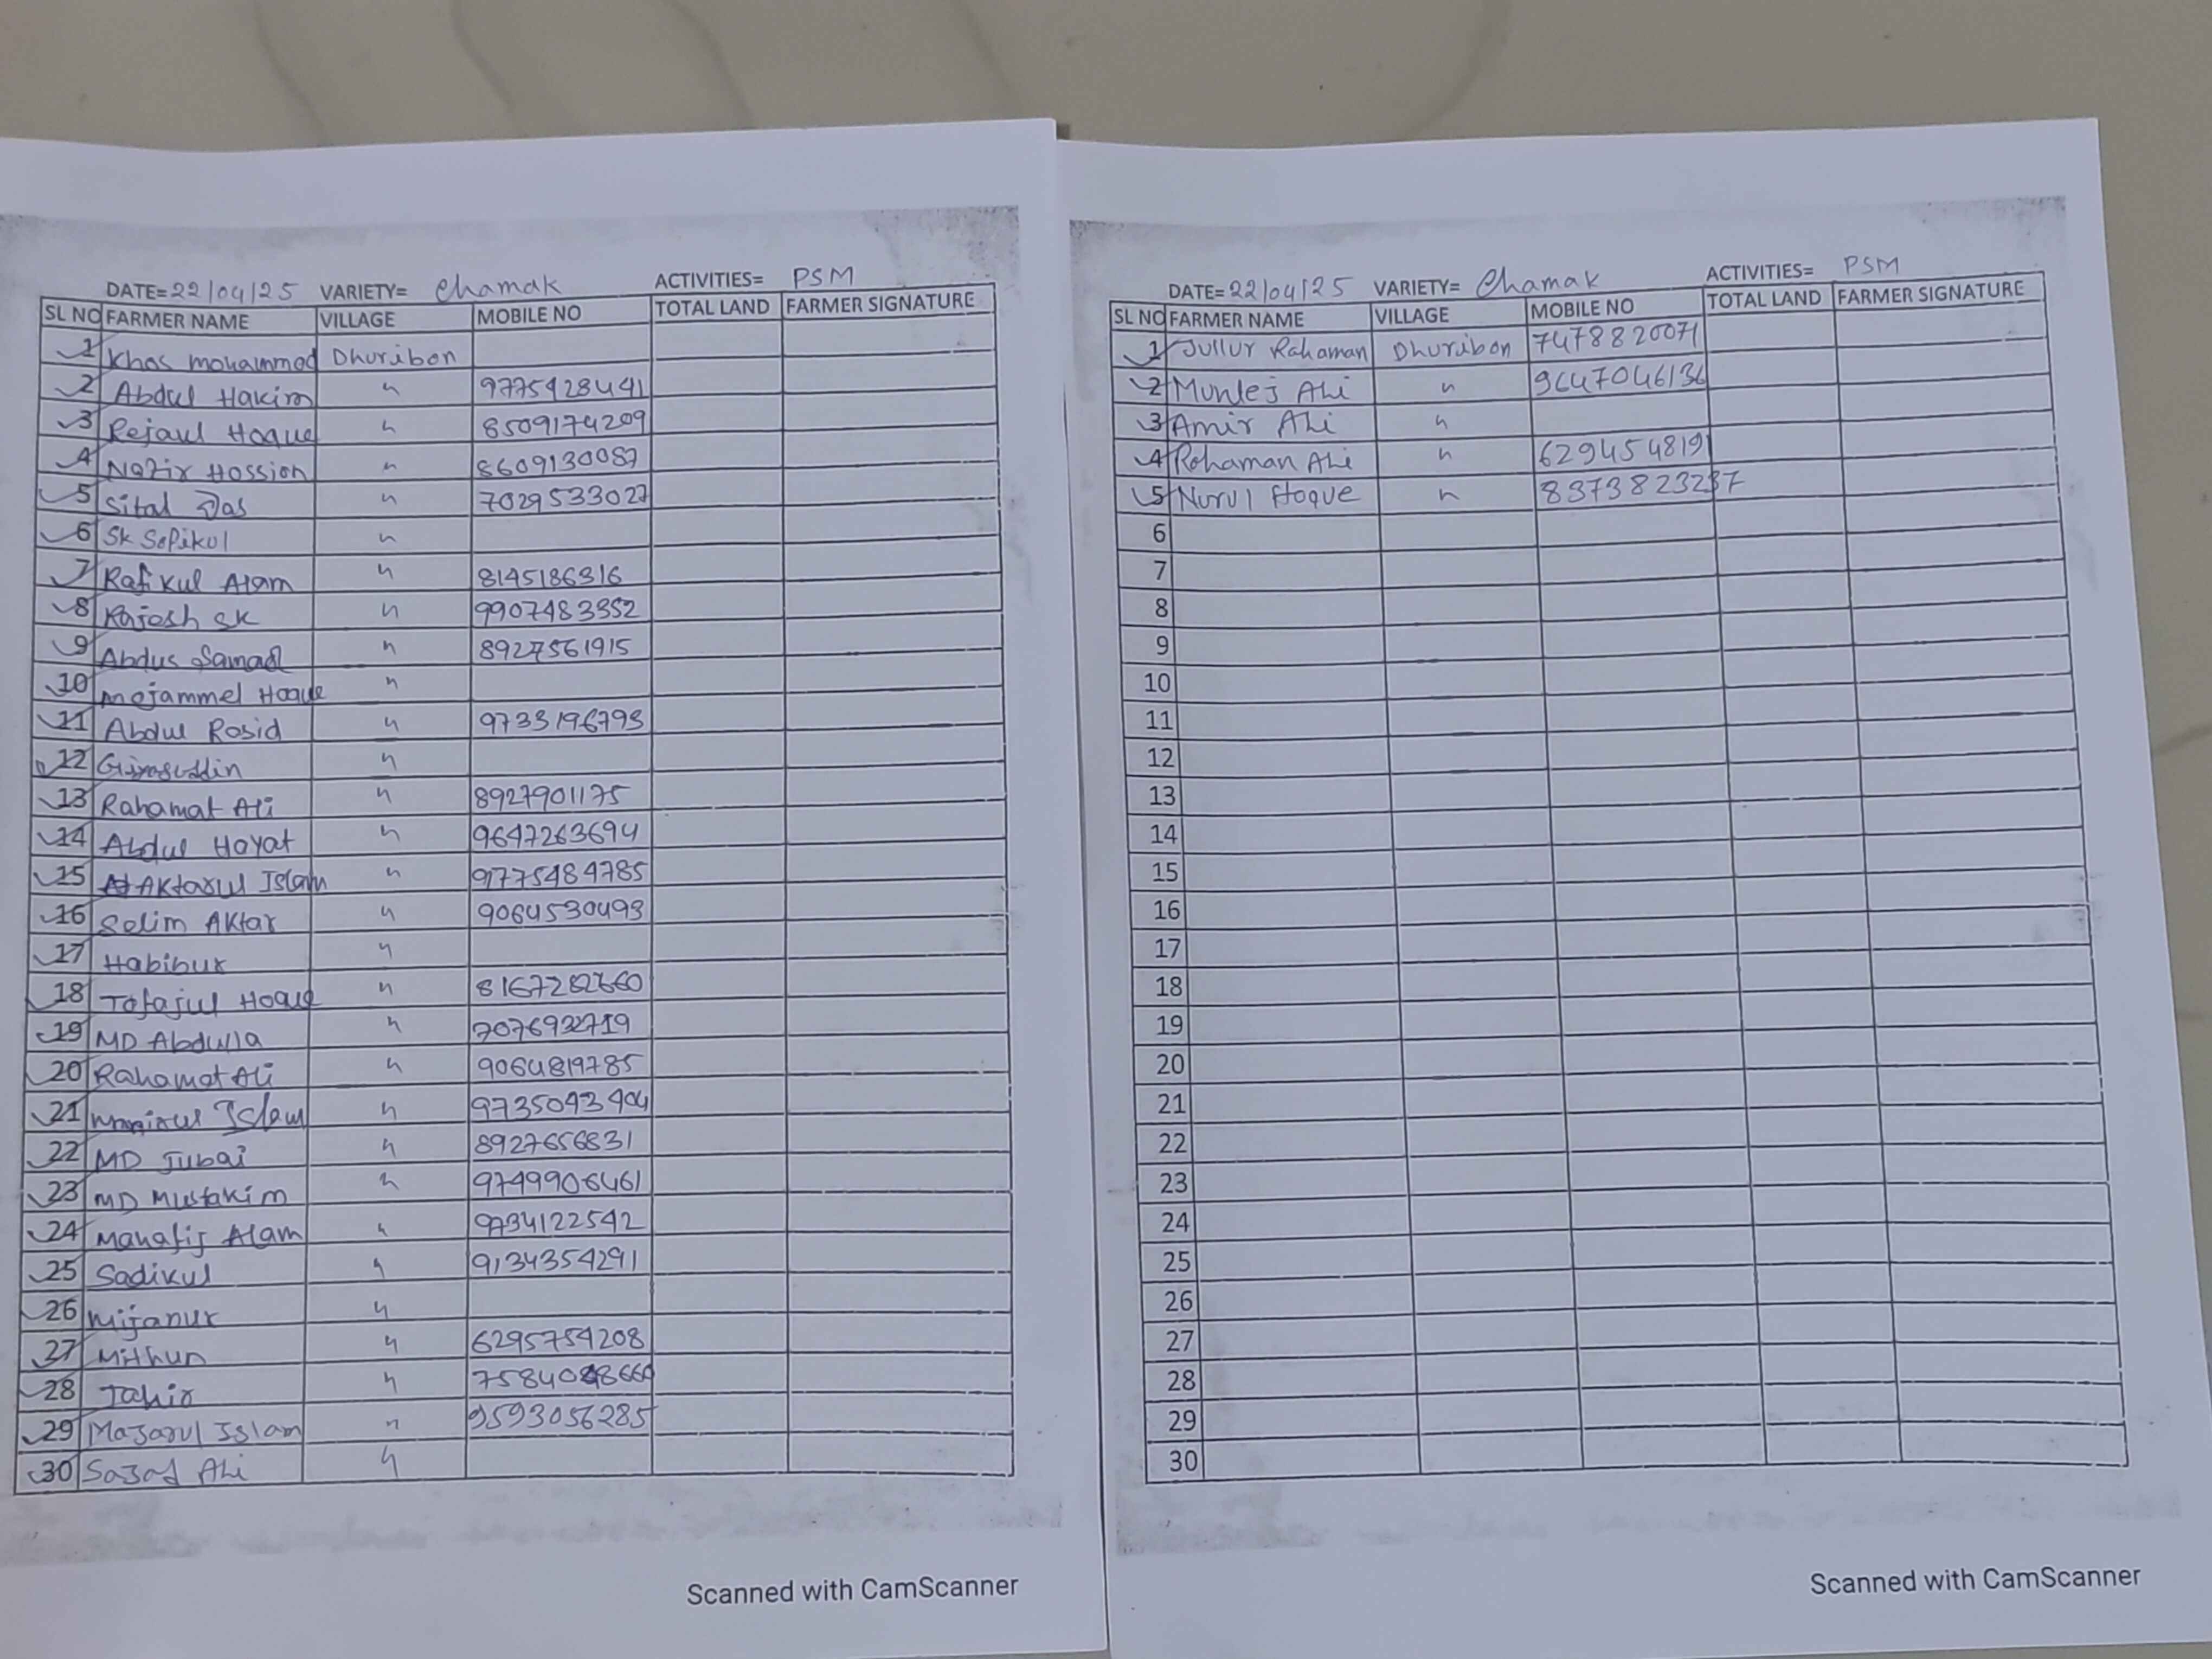 DATE=22/04/25 VARIETY= Chamak ACTIVITIES= PSM
SL NO FARMER NAME VILLAGE MOBILE NO TOTAL LAND FARMER SIGNATURE
1 Khas mohammod Dhuribon
2 Abdul Hakim " 9775428441
3 Rejaul Hoque " 8509174209
4 Nazir Hossion " 8609130087
5 Sital Das " 7029533027
6 Sk Sofikul "
7 Rafikul Alam " 8145186316
8 Rajesh SK " 9907483352
9 Abdus Samad " 8927561915
10 Mojammel Hoque "
11 Abdul Rosid " 9733196793
12 Giyasuddin "
13 Rahamat Ali " 8927901175
14 Abdul Hayat " 9647263694
15 Aktarul Islam " 9775484785
16 Selim Aktar " 9064530493
17 Habibur "
18 Tofajul Hoque " 8167282660
19 MD Abdulla "
20 Rahamat Ali " 9064819785
21 Monirul Islam " 9735093904
22 MD Jubai " 8927656831
23 MD Mustakim " 9749906461
24 Manafij Alam " 9734122542
25 Sadikul " 9134354291
26 Mijanur "
27 Mithun " 6295754208
28 Tahir "
29 Majarul Islam " 9593056285
30 Sajad Ali "
Scanned with CamScanner
DATE=22/04/25 VARIETY= Chamak ACTIVITIES= PSM
SL NO FARMER NAME VILLAGE MOBILE NO TOTAL LAND FARMER SIGNATURE
1 Jullur Rahaman Dhuribon 7478820071
2 Munlej Ali " 9647046136
3 Amir Ali "
4 Rohaman Ali " 6294548191
5 Nurul Hoque " 8373823237
6
7
8
9
10
11
12
13
14
15
16
17
18
19
20
21
22
23
24
25
26
27
28
29
30
Scanned with CamScanner